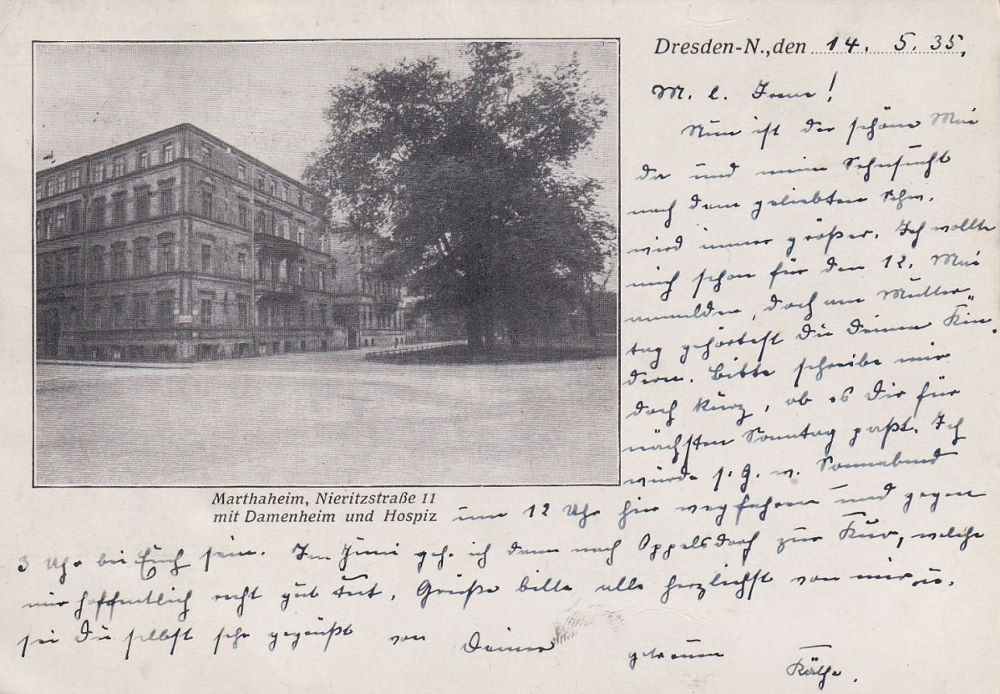 Dresden-N., den 14. 5. 35.
M. l. Irene!
Nun ist der schöne Mai
da und meine Sehnsucht
nach dem geliebten
wird immer größer. Ich wollte
mich schon für den 12. Mai
anmelden, doch am Mutter-
tag gehörtest Du Deinen Kin-
dern. Bitte schreibe mir
doch kurz, ob es Dir für
nächsten Sonntag paßt. Ich
würde s. G. w. Sonnabend
Marthaheim, Nieritzstraße 11
mit Damenheim und Hospiz
um 12 Uhr hier wegfahren und gegen
3 Uhr bei Euch sein. Im Juni gehe ich dann nach Oppelsdorf zur Kur, welche
mir hoffentlich recht gut tut. Grüße bitte alle herzlichst von mir u.
sei Du selbst sehr gegrüßt von Deiner getreuen
Käthe.